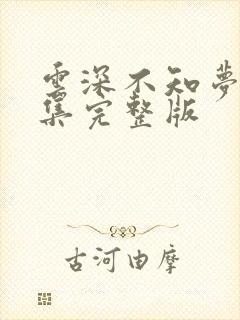 雲深不知夢
集完整版
古河由摩